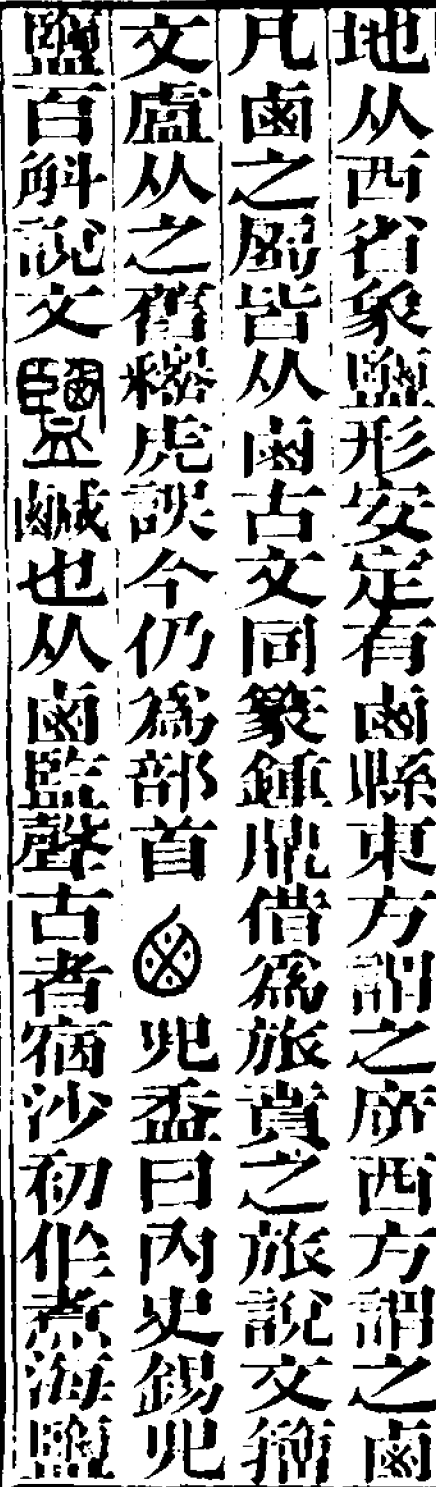 地从西省象鹽形安定有鹵縣東方謂之㡿西方謂之鹵
凡鹵之屬皆从鹵古文同篆鍾鼎借爲旅賞之旅說文籒
文盧从之舊釋虎誤今仍爲部首 兕盉曰內史錫兕
鹽百斛說文鹽鹹也从鹵監聲古者宿沙初作煮海鹽